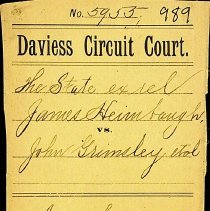 No. 5955, 989
Daviess Circuit Court.
The State ex rel
James Heimbaugh,
vs.
John Grimsley, etal